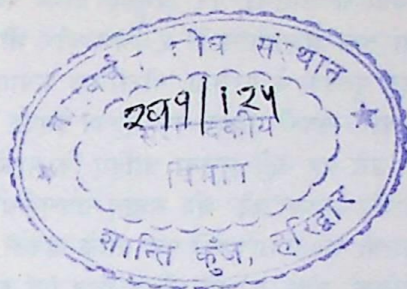 शोध संस्थान
299/124
सम्पादकीय
विभाग
शान्ति कुंज, हरिद्वार